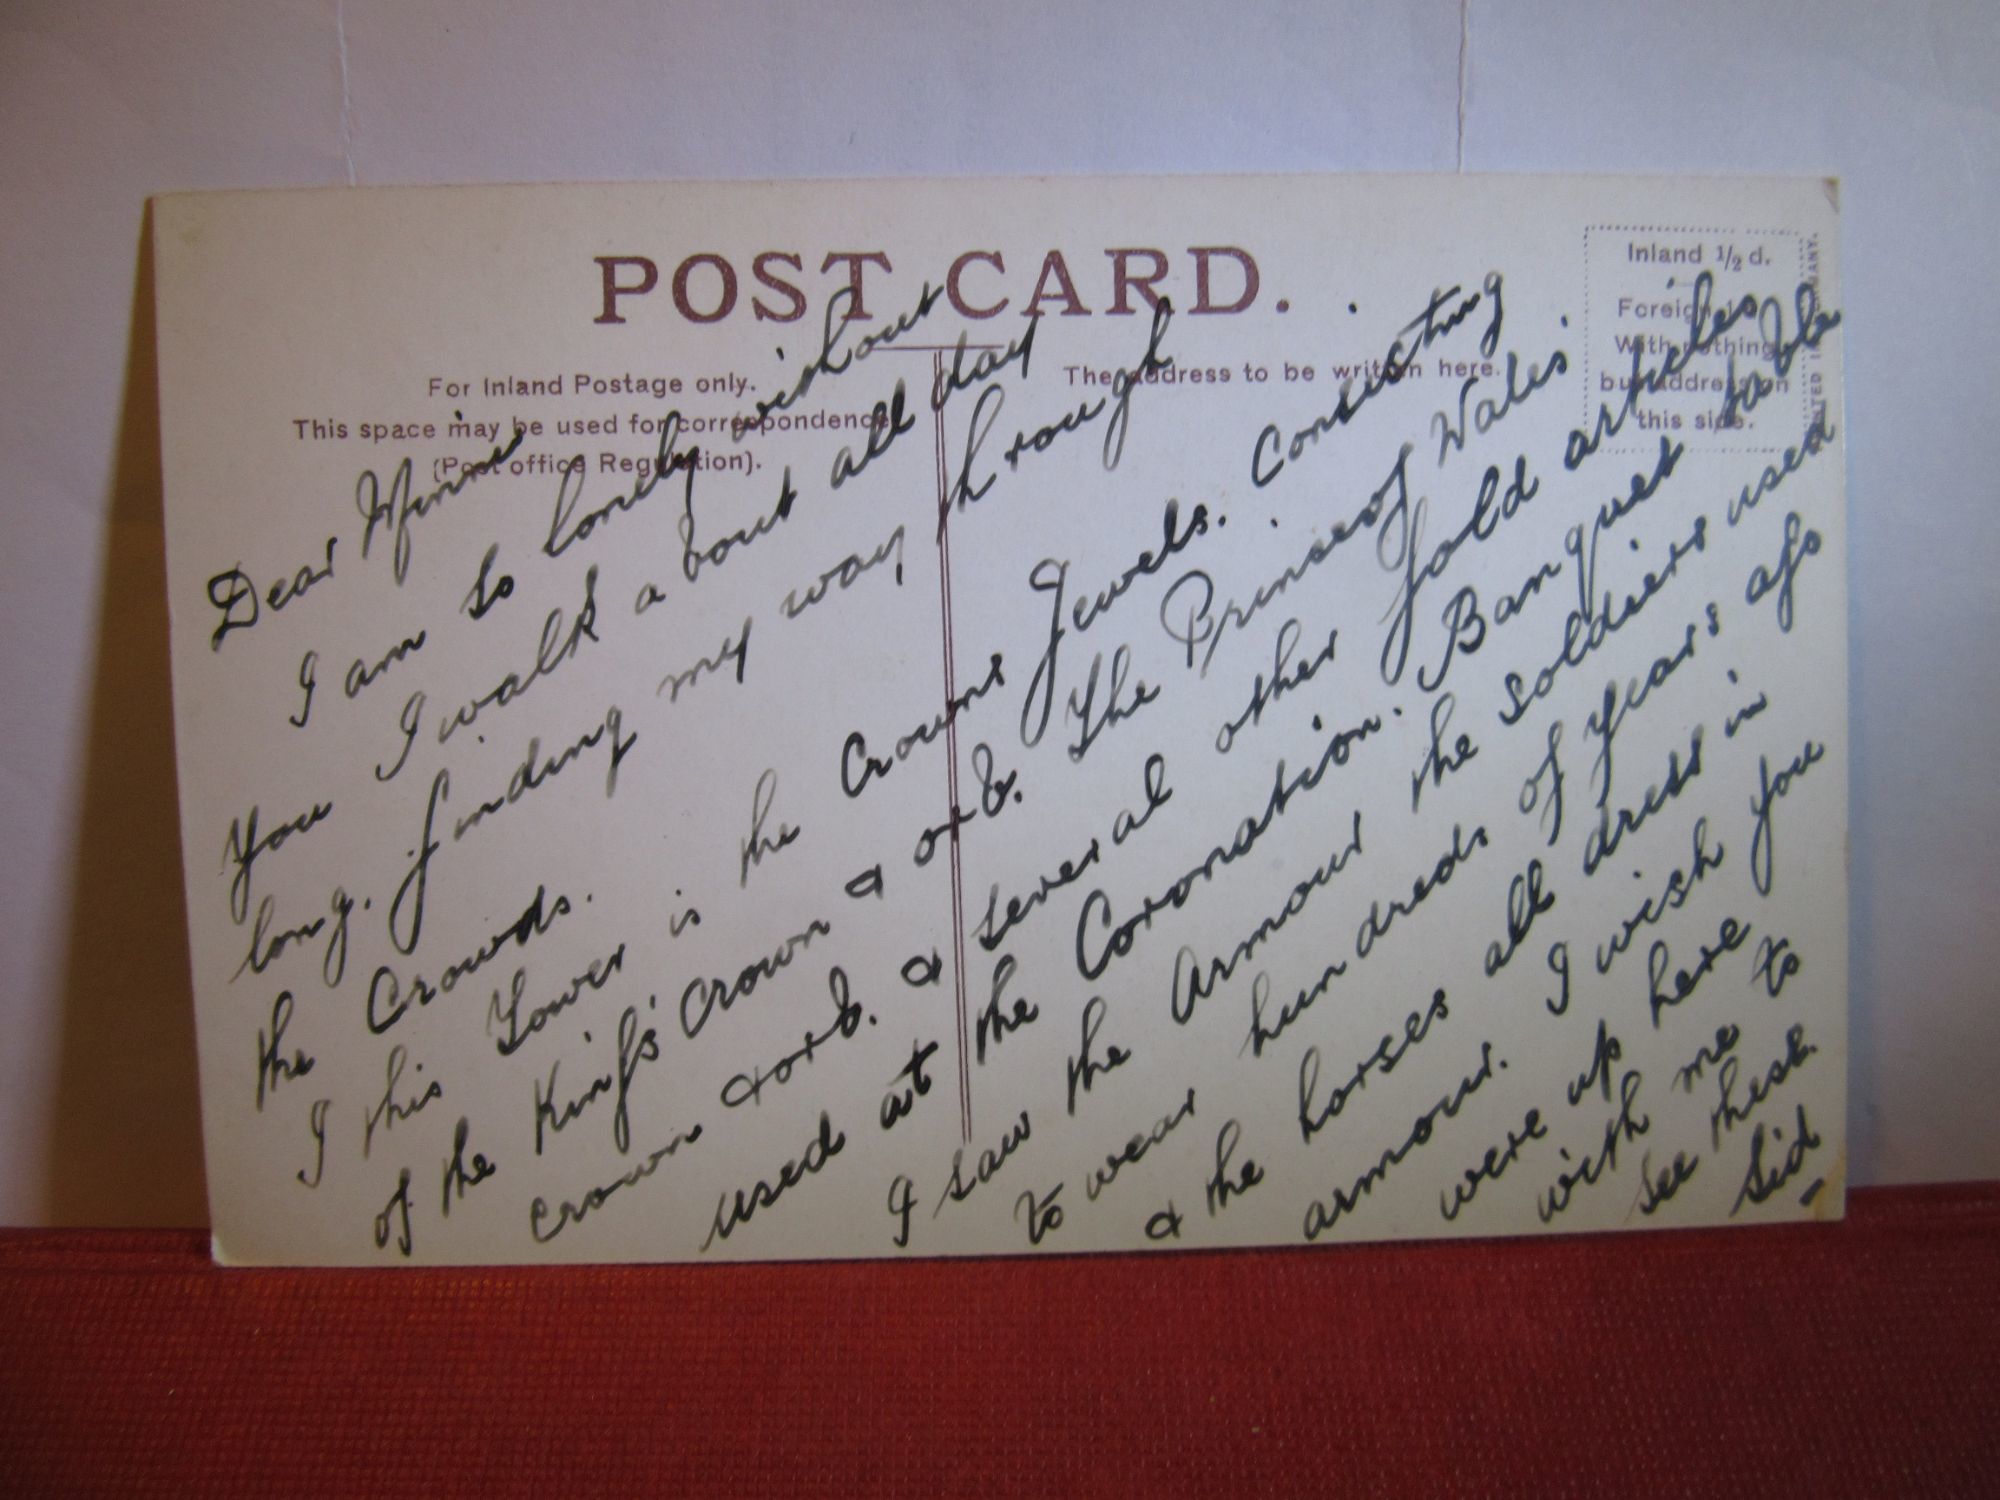 POST CARD.
For Inland Postage only.
This space may be used for correspondence
(Post office Regulation).
The address to be written here.
Inland ½ d.
Foreign
With nothing
but address on
this side.
PRINTED IN GERMANY.
Dear Winnie
I am so lonely without
you I walk a bout all day
long. finding my way through
the Crowds.
I this Tower is the Crowns Jewels. Consisting
of the King's Crown & orb. The Prince of Wales'
crown & orb. & several other gold articles
used at the Coronation. Banquet table
I saw the Armour the soldiers used
to wear hundreds of years ago
& the horses all drest in
armour. I wish you
were up here
with me to
see these.
Sid